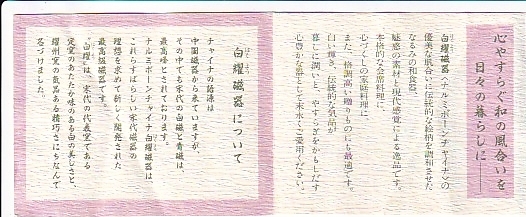 心やすらぐ和の風合いを
日々の暮らしに──
白耀磁器〈ナルミボーンチャイナ〉の
なるみの和食器。
優美な肌合いに伝統的な絵柄を調和させた
魅惑の素材と現代感覚による逸品です。
本格的な会席料理に、
心づくしの家庭料理に、
また、格調高い贈りものにも最適です。
白い輝き、伝統的な気品が
暮しに潤いと、やすらぎをかもしだす
心豊かな器として末永くご愛用ください。
“白耀磁器”について
はくようじき
チャイナの語源は
中国磁器から来ていますが、
その中でも宋代の白磁と青磁は、
最高峰とされております。
ナルミボーンチャイナ白耀磁器は
これらすばらしい宋代磁器の
理想を求めて新しく開発された
最高級磁器です。
“白耀”は、宋代の代表窯である
定窯のあたたか味のある白の美しさと、
耀州窯の気品ある精巧さにちなんで
名づけました。